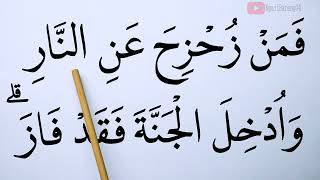 فَمَنْ زُحْزِحَ عَنِ النَّارِ
وَاُدْخِلَ الْجَنَّةَ فَقَدْ فَازَ ۗ